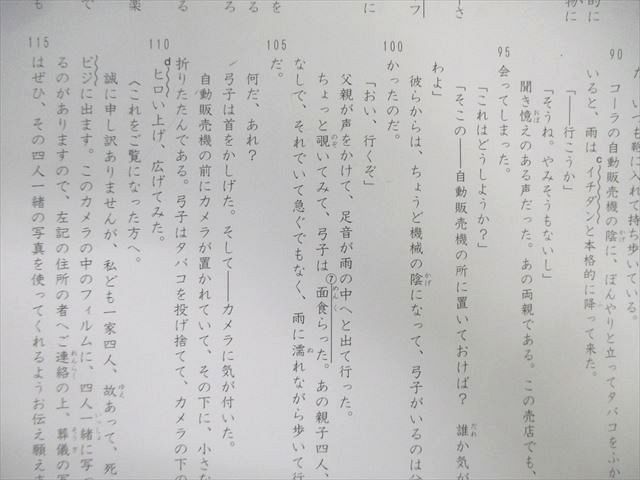 的に
物に
ーさ
に
フ
を
ろ
楽
も
だ、いつも鞄に入れて持ち歩いている。
90
コーラの自動販売機の陰に、ぼんやりと立ってタバコをふか
かげ
いると、雨はイチダンと本格的に降って来た。
c
「――行こうか」
「そうね。やみそうもないし」
聞き憶えのある声だった。あの両親である。この売店でも、
おぼ
95
会ってしまった。
「これはどうしようか?」
「そこの――自動販売機の所に置いておけば? 誰か気が
だれ
わよ」
彼らからは、ちょうど機械の陰になって、弓子がいるのは分
かげ
100
かったのだ。
「おい、行くぞ」
父親が声をかけて、足音が雨の中へと出て行った。
ちょっと覗いてみて、弓子は⑦面食らった。あの親子四人、
のぞ
めんく
なしで、それでいて急ぐでもなく、雨に濡れながら歩いて行
ぬ
105
だ。
何だ、あれ?
弓子は首をかしげた。そして――カメラに気が付いた。
自動販売機の前にカメラが置かれていて、その下に、小さな
折りたたんである。弓子はタバコを投げ捨てて、カメラの下の
110
dヒロい上げ、広げてみた。
〈これをご覧になった方へ。
誠に申し訳ありませんが、私ども一家四人、故あって、死
ゆえ
ビジに出ます。このカメラの中のフィルムに、四人一緒に写っ
いっしょ
るのがありますので、左記の住所の者へご連絡の上、葬儀の写
れんらく
そうぎ
115
はぜひ、その四人一緒の写真を使ってくれるようお伝え願えま